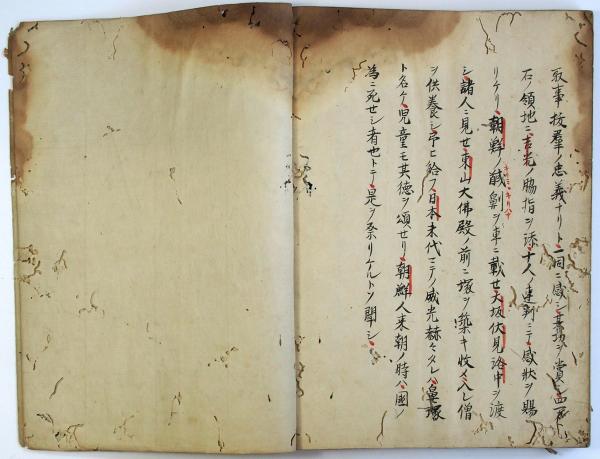 取事抜羣ノ忠義ナリト一同ニ感シ其功ヲ賞シ
石ノ領地ニ吉光ノ脇指ヲ添十人ノ連判ニテ感状ヲ賜
リケリ朝鮮ノ馘劓ヲ車ニ載セ大坂伏見洛中ヲ渡
シ諸人ニ見セ東山大佛殿ノ前ニ塚ヲ築キ收メ入レ僧
ヲ供養シ弔ヒ給フ日本末代ニテノ威光赫々タレハ鼻塚
ト名ケ児童モ其徳ヲ頌セリ朝鮮人来朝ノ時ハ國ノ
為ニ死セシ者也トテ是ヲ祭リケルトソ聞シ